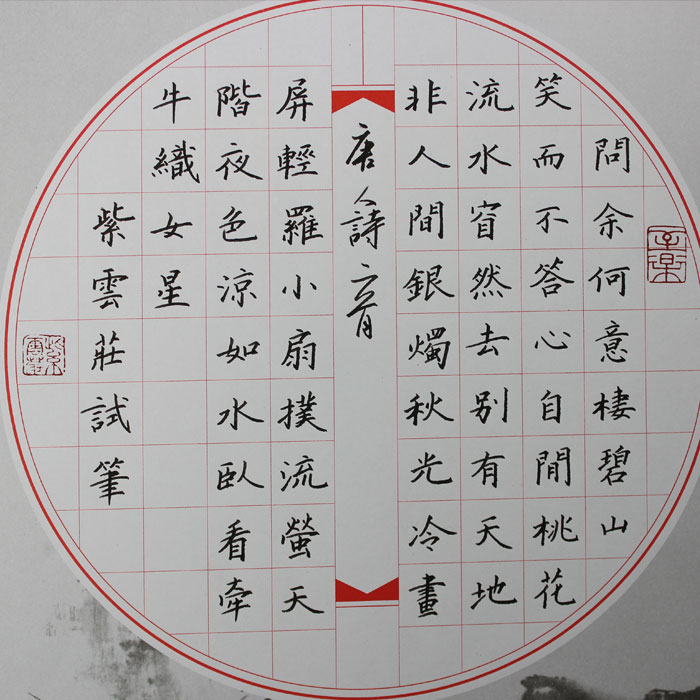 問余何意棲碧山
笑而不答心自閒桃花
流水窅然去别有天地
非人間銀燭秋光冷畫
唐人詩二首
屏輕羅小扇撲流螢天
階夜色涼如水臥看牽
牛織女星
紫雲莊試筆